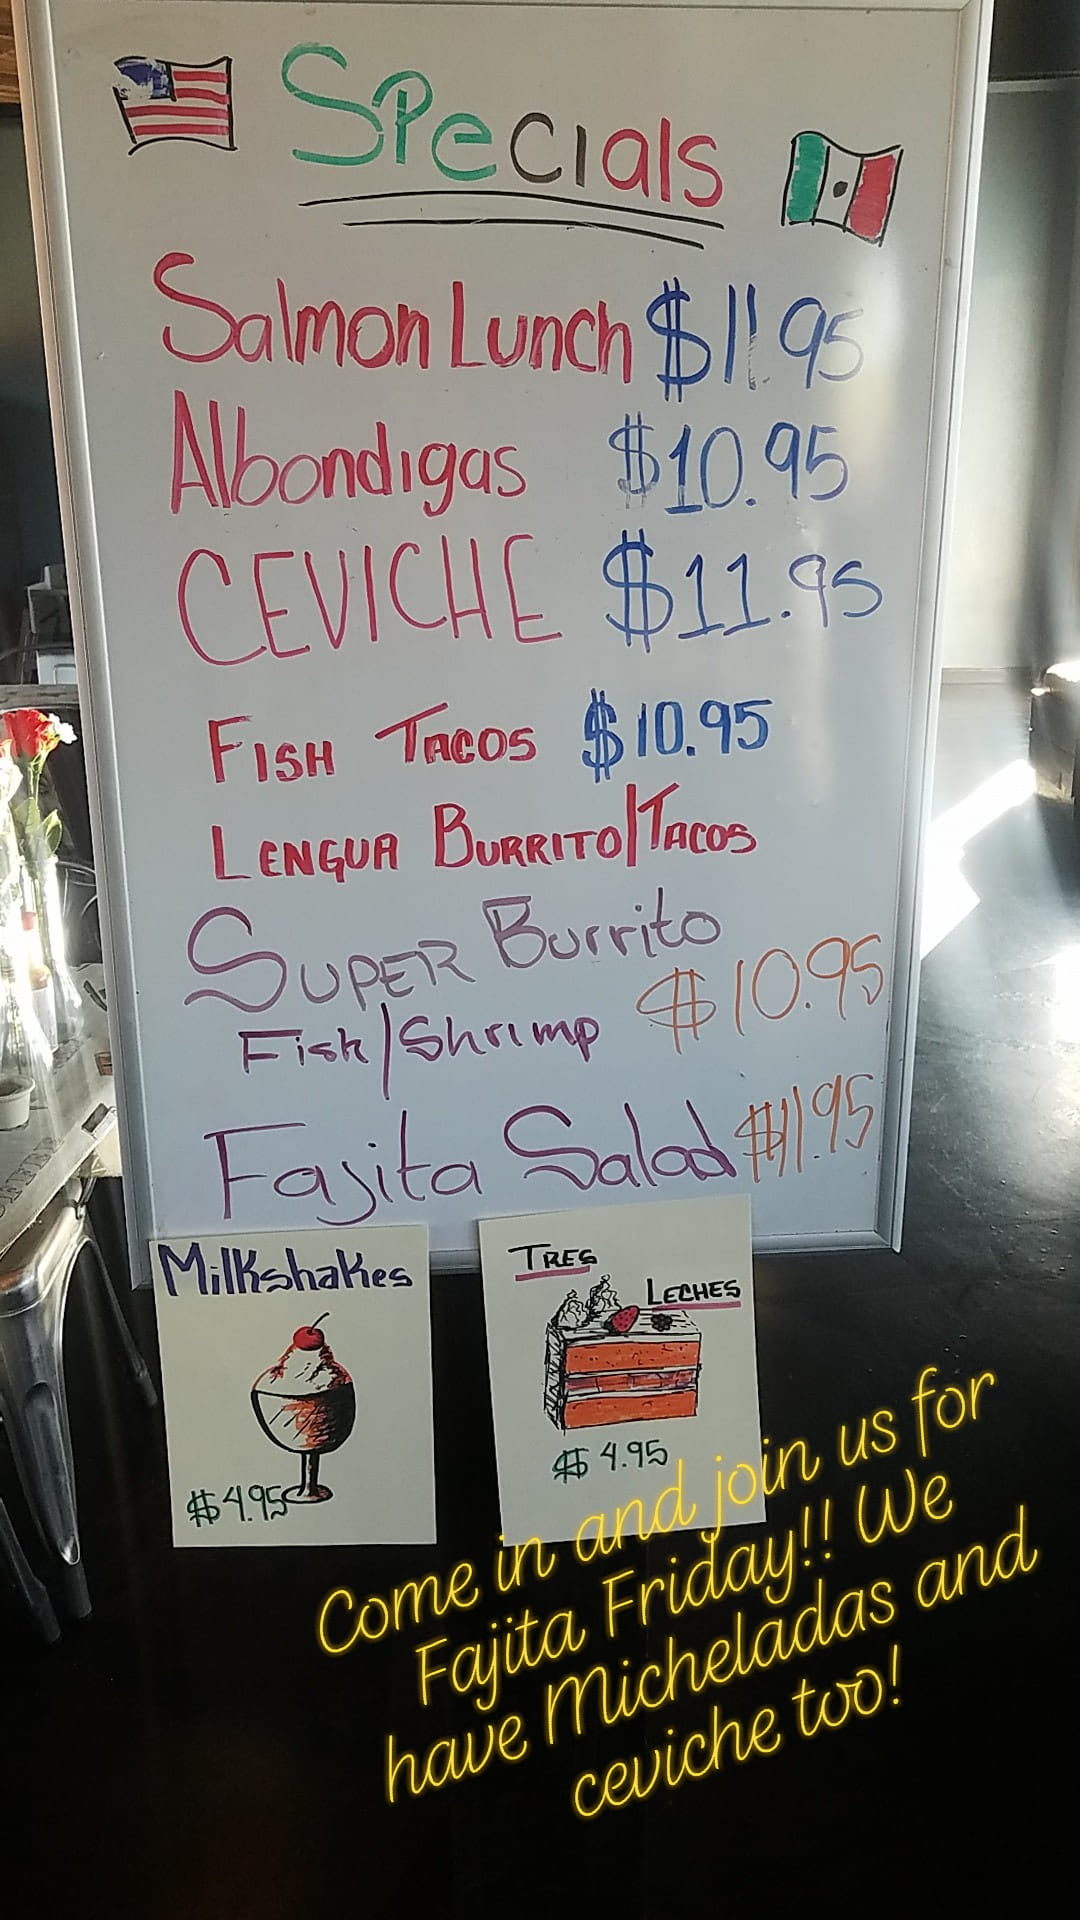 Specials
Salmon Lunch $11.95
Albondigas $10.95
CEVICHE $11.95
FISH TACOS $10.95
LENGUA BURRITO/TACOS
SUPER Burrito
Fish/Shrimp $10.95
Fajita Salad $11.95
Milkshakes
$4.95
TRES
LECHES
$4.95
Come in and join us for
Fajita Friday!! We
have Micheladas and
ceviche too!